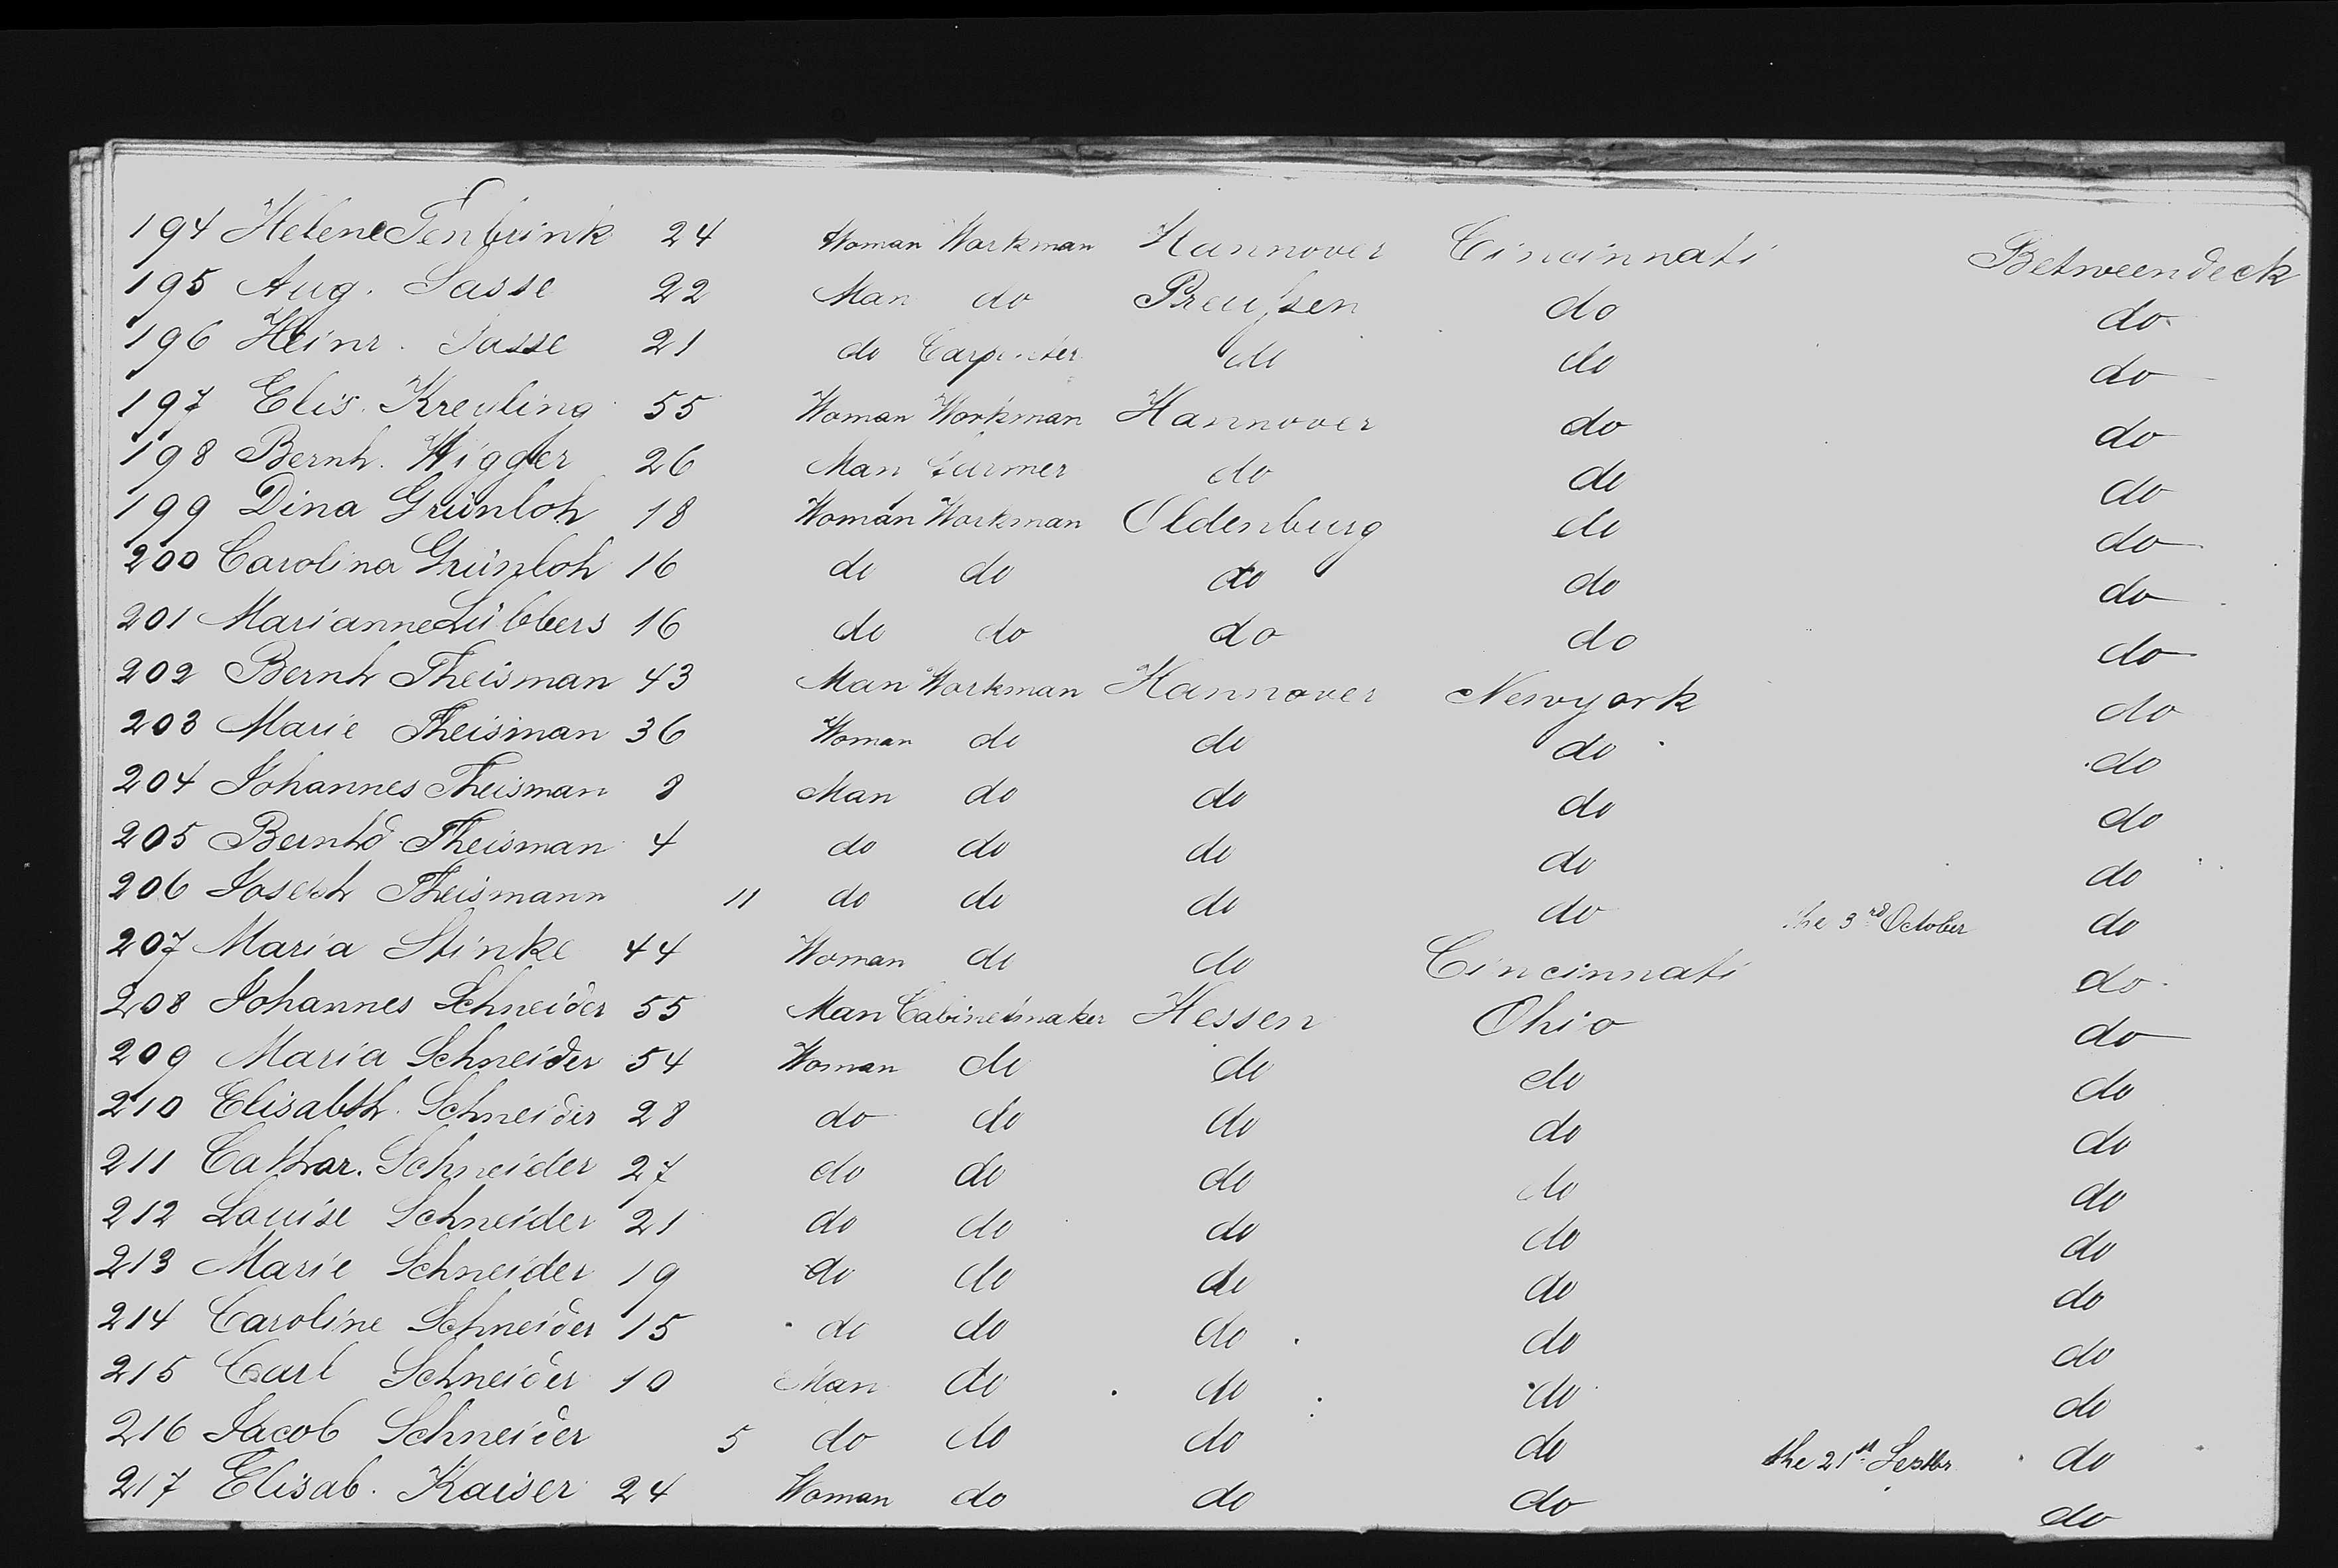 194 Helene Tenbrink 24 Woman Workman Hannover Cincinnati Betweendeck
195 Aug. Sasse 22 Man do Preußen do do
196 Heinr. Sasse 21 do Carpenter do do do
197 Elis. Kreyling 55 Woman Workman Hannover do do
198 Bernh. Wigger 26 Man Farmer do do do
199 Dina Grünloh 18 Woman Workman Oldenburg do do
200 Carolina Grünloh 16 do do do do do
201 Marianne Lübbers 16 do do do do do
202 Bernh Theisman 43 Man Workman Hannover Newyork do
203 Marie Theisman 36 Woman do do do do
204 Johannes Theisman 8 Man do do do do
205 Bernhd Theisman 4 do do do do do
206 Joseph Theismann 11 do do do do the 3rd October do
207 Maria Stinke 44 Woman do do Cincinnati do
208 Johannes Schneider 55 Man Cabinetmaker Hessen Ohio do
209 Maria Schneider 54 Woman do do do do
210 Elisabth. Schneider 28 do do do do do
211 Cathar. Schneider 27 do do do do do
212 Louise Schneider 21 do do do do do
213 Marie Schneider 19 do do do do do
214 Caroline Schneider 15 do do do do do
215 Carl Schneider 10 Man do do do do
216 Jacob Schneider 5 do do do do the 21st Septbr do
217 Elisab. Kaiser 24 Woman do do do do